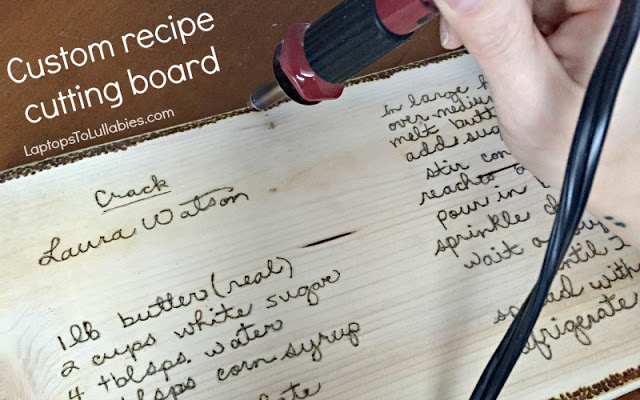 Custom recipe
cutting board
LaptopsToLullabies.com
Crack
Laura Watson
1 lb butter (real)
2 cups white sugar
4 tblsps. water
corn syrup
in large
over medium
melt butt
add sug
stir con
reaches
pour in
sprinkle
wait a
until 2
with
refrigerate